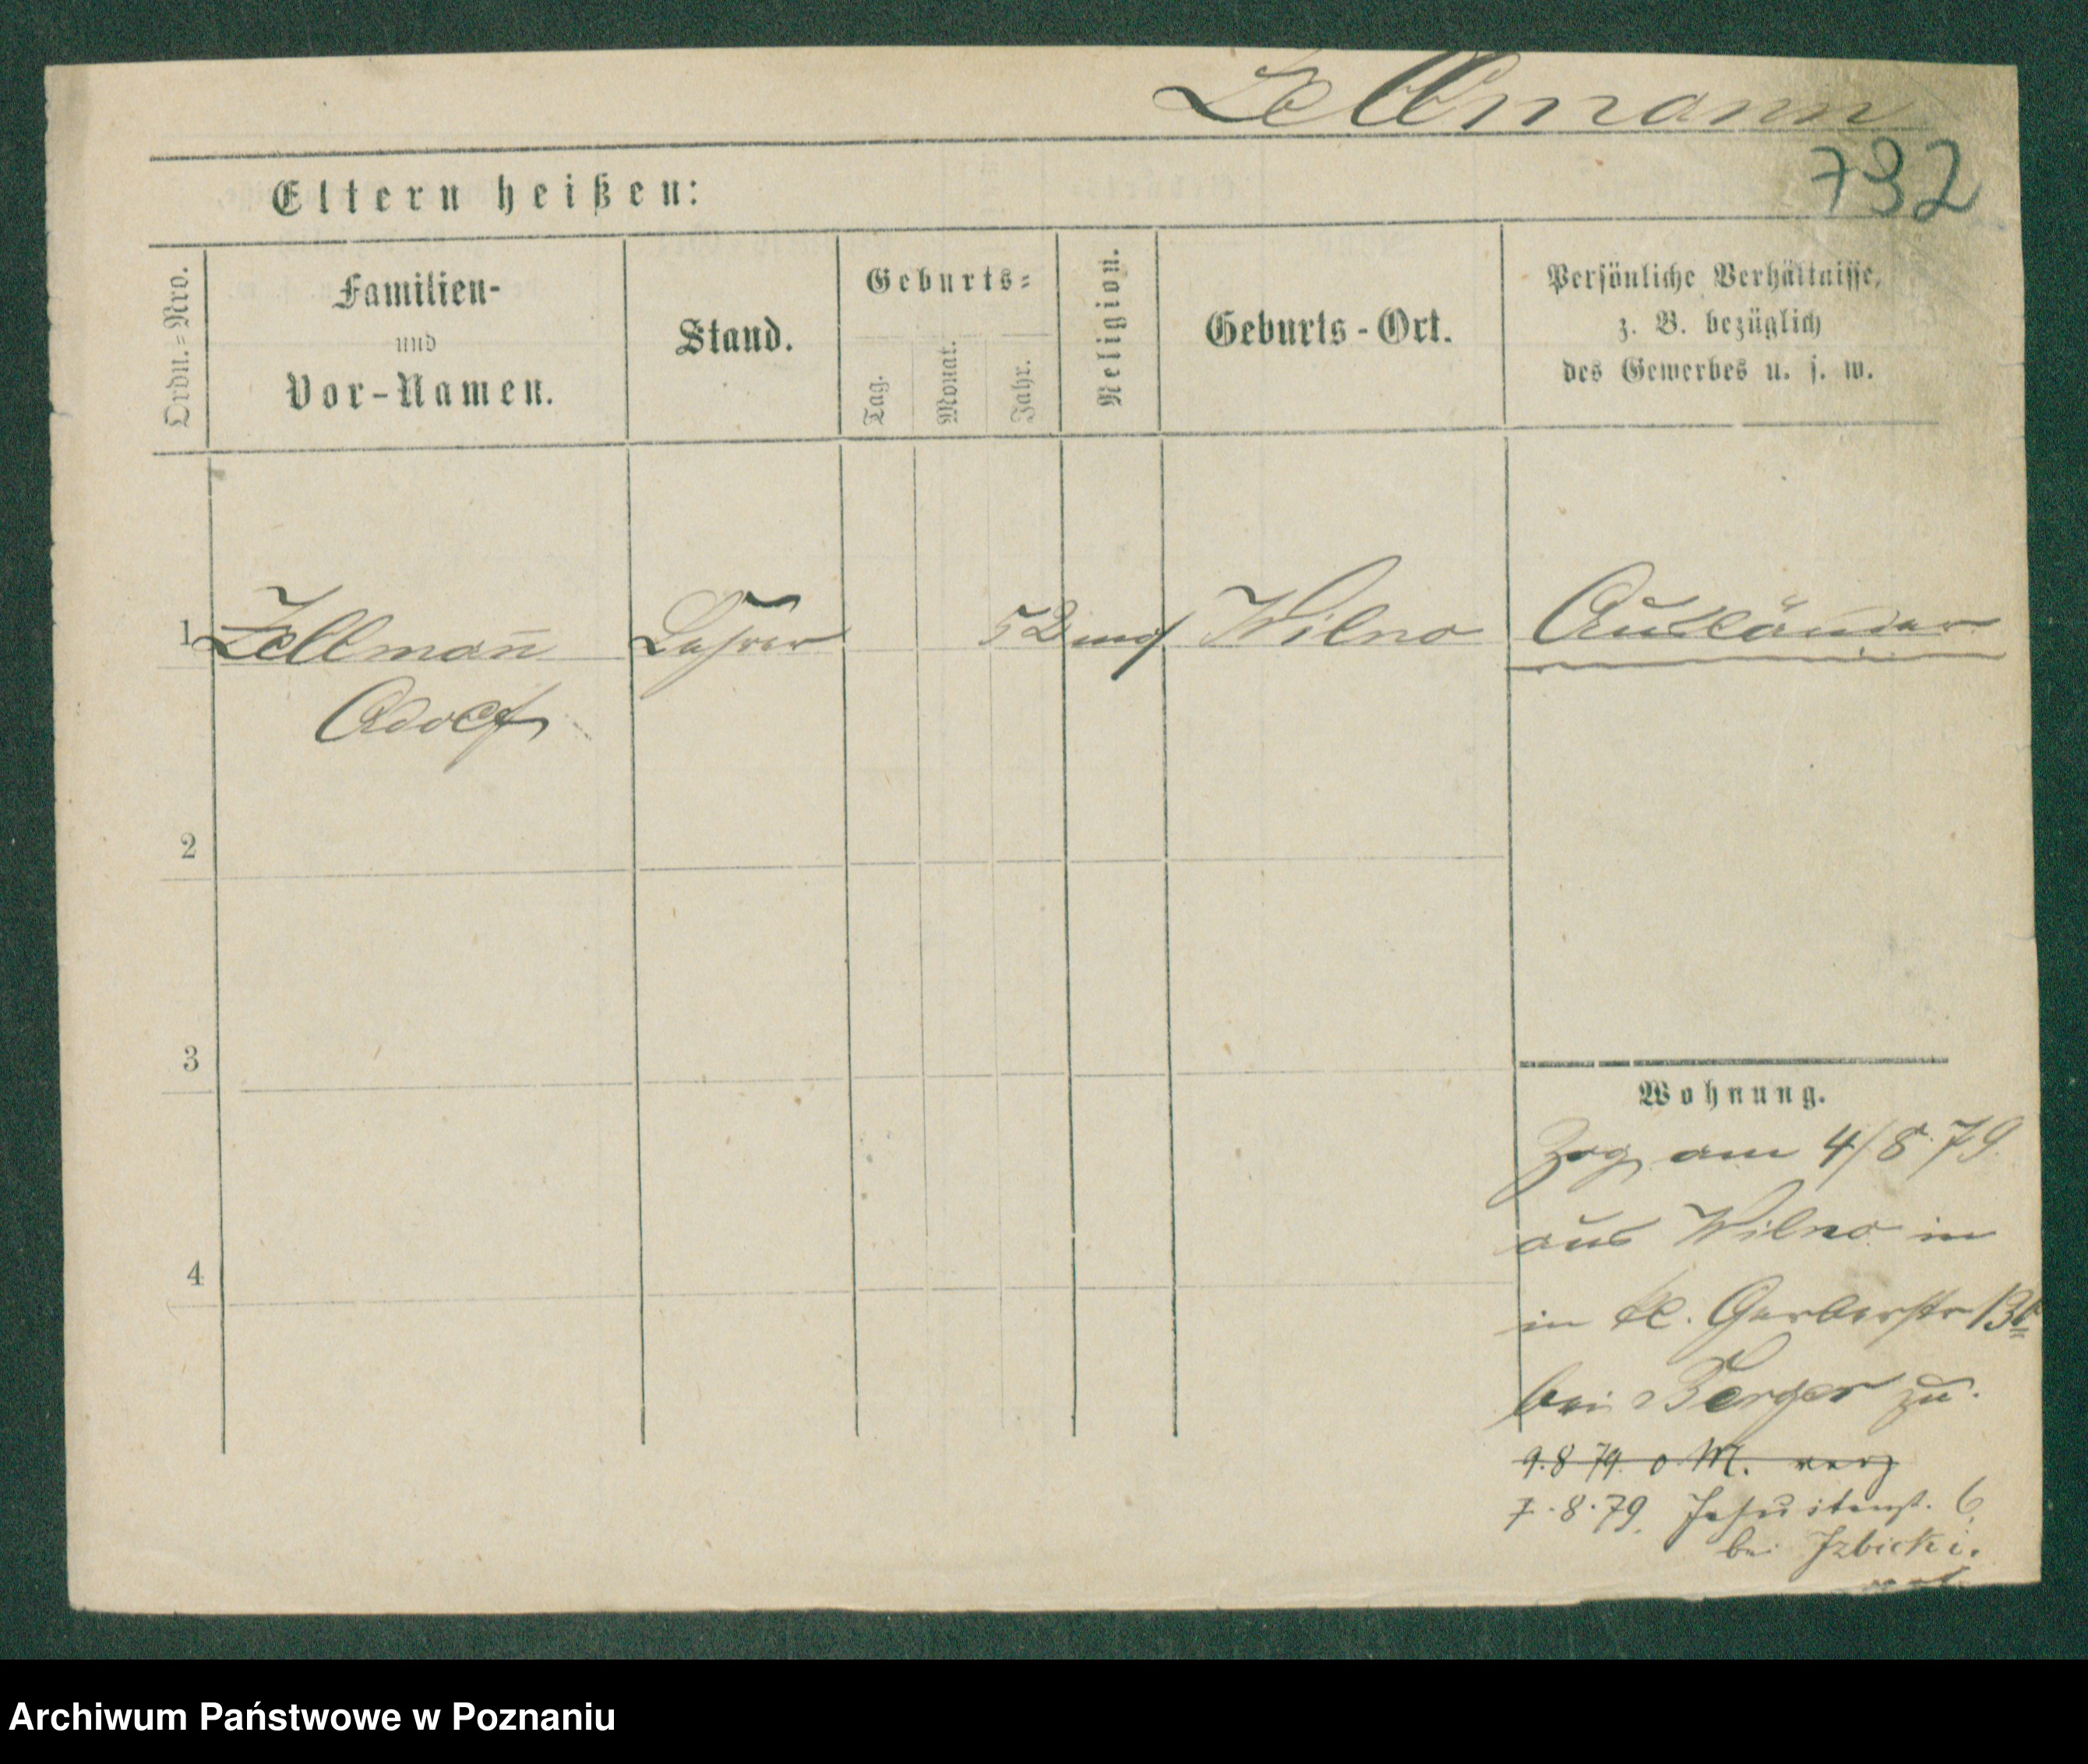 Zellmann
732
Eltern heißen:
Ordn.=Nro.
Familien-
und
Vor-Namen.
Stand.
Geburts=
Tag.
Monat.
Jahr.
Religion.
Geburts-Ort.
Persönliche Verhältnisse,
z. B. bezüglich
des Gewerbes u. s. w.
1 Zellman̄ Lehrer 52 Wilno Ausländer
Adolf
2
3
4
Wohnung.
Zog am 4/8 79
aus Wilno in
in kl. Gerberstr 13
bei Berger zu.
9.8 79. o M. verz
7.8.79. Jesuitenst. 6.
bei Izbicki.
Archiwum Państwowe w Poznaniu